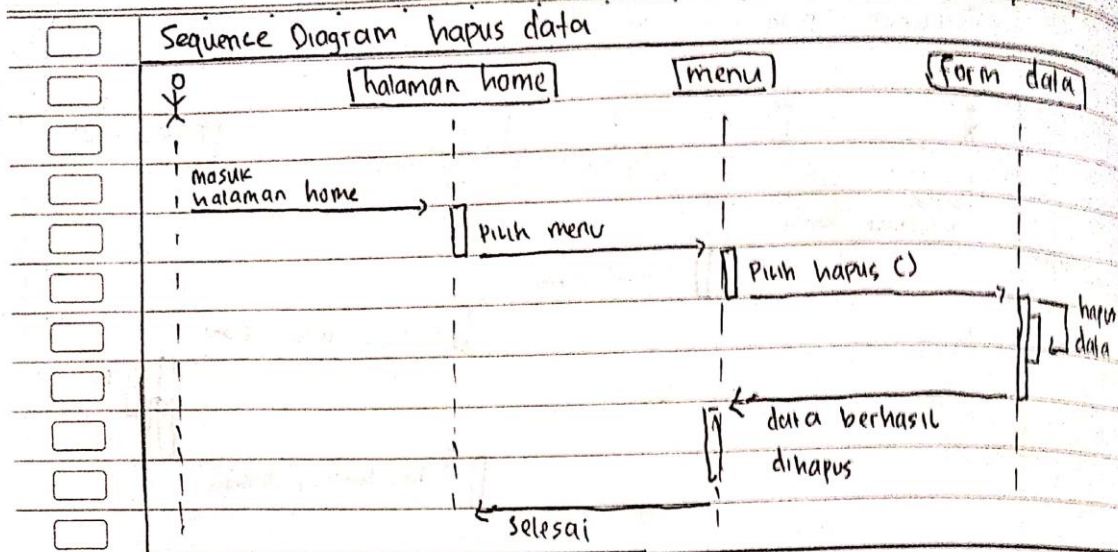 Sequence Diagram hapus data
halaman home
menu
form data
masuk
halaman home
Pilih menu
Pilih hapus ()
hapus
data
data berhasil
dihapus
selesai